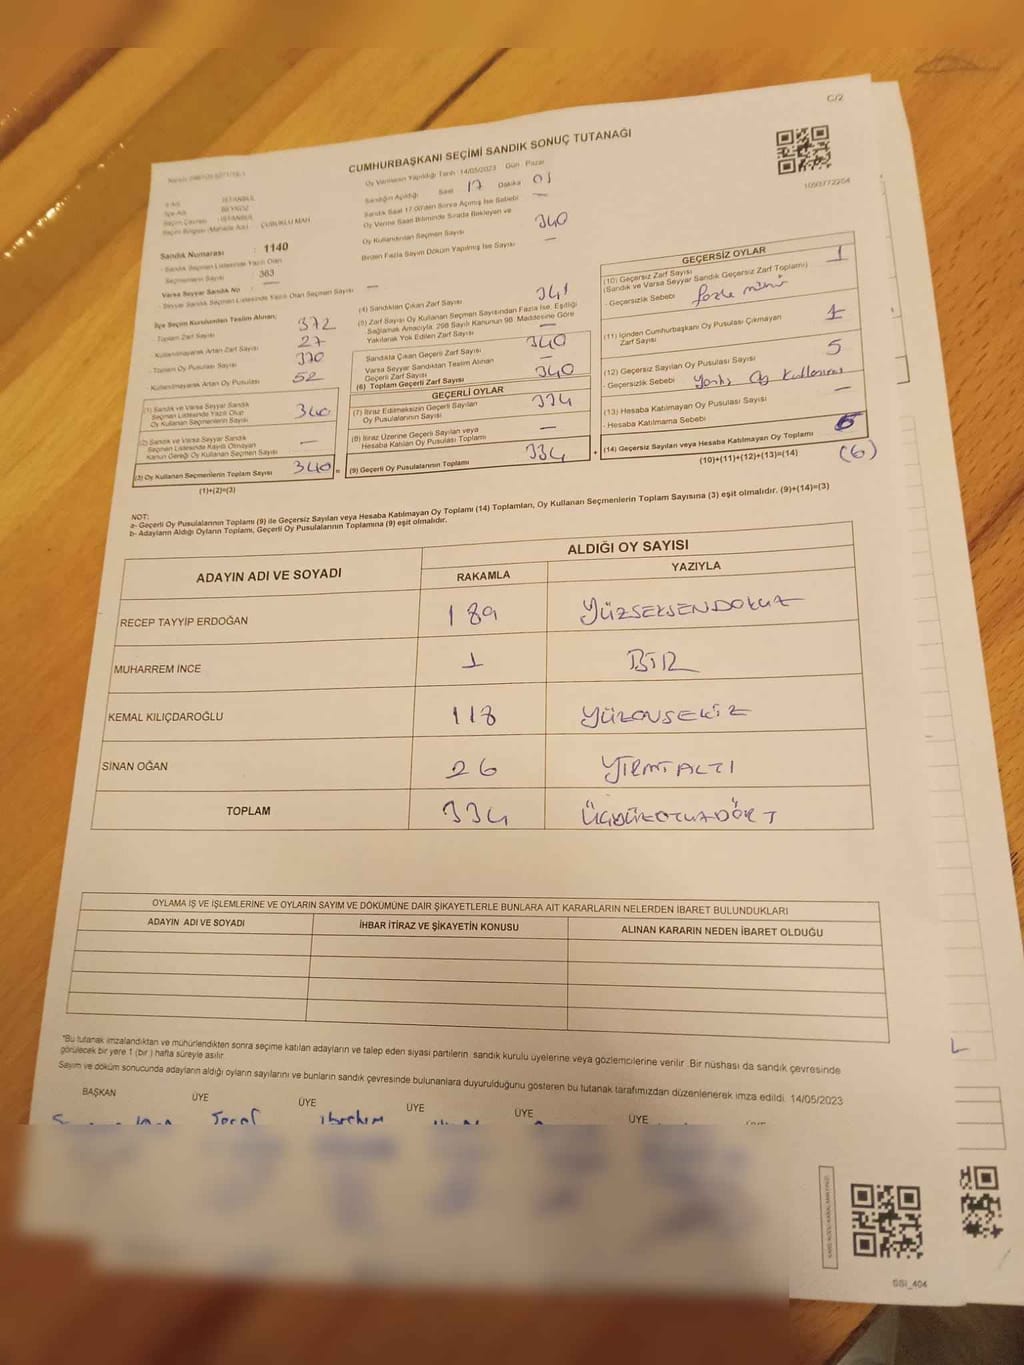 C/2
CUMHURBAŞKANI SEÇİMİ SANDIK SONUÇ TUTANAĞI
1093772264
Oy Verilmenin Yapıldığı Tarih :14/05/2023 Gün : Pazar
Sandığın Açıldığı Saat 17 Dakika 01
Sandık Saat 17:00'den Sonra Açılmış İse Sebebi —
Oy Verme Saati Bitiminde Sırada Bekleyen ve
Oy Kullandırılan Seçmen Sayısı 340
Birden Fazla Sayım Döküm Yapılmış İse Sayısı —
İl Adı : İSTANBUL
İlçe Adı : BEYKOZ
Seçim Çevresi : İSTANBUL
Seçim Bölgesi (Mahalle Adı) : ÇUBUKLU MAH.
Sandık Numarası : 1140
- Sandık Seçmen Listesinde Yazılı Olan
Seçmenlerin Sayısı : 363
Varsa Seyyar Sandık No : —
- Seyyar Sandık Seçmen Listesinde Yazılı Olan Seçmen Sayısı —
İlçe Seçim Kurulundan Teslim Alınan;
Toplam Zarf Sayısı 372
Kullanılmayarak Artan Zarf Sayısı 27
- Toplam Oy Pusulası Sayısı 370
Kullanılmayarak Artan Oy Pusulası 52
(1) Sandık ve Varsa Seyyar Sandık
Seçmen Listesinde Yazılı Olup
Oy Kullanan Seçmenlerin Sayısı 340
(2) Sandık ve Varsa Seyyar Sandık
Seçmen Listesinde Kayıtlı Olmayan
Kanun Gereği Oy Kullanan Seçmen Sayısı —
(3) Oy Kullanan Seçmenlerin Toplam Sayısı 340 =
(1)+(2)=(3)
(4) Sandıktan Çıkan Zarf Sayısı 341
(5) Zarf Sayısı Oy Kullanan Seçmen Sayısından Fazla İse, Eşitliği
Sağlamak Amacıyla; 298 Sayılı Kanunun 98. Maddesine Göre
Yakılarak Yok Edilen Zarf Sayısı —
Sandıkta Çıkan Geçerli Zarf Sayısı 340
Varsa Seyyar Sandıktan Teslim Alınan
Geçerli Zarf Sayısı —
(6) Toplam Geçerli Zarf Sayısı 340
GEÇERLİ OYLAR
(7) İtiraz Edilmeksizin Geçerli Sayılan
Oy Pusulalarının Sayısı 334
(8) İtiraz Üzerine Geçerli Sayılan veya
Hesaba Katılan Oy Pusulası Toplamı —
(9) Geçerli Oy Pusulalarının Toplamı 334 +
GEÇERSİZ OYLAR
(10) Geçersiz Zarf Sayısı 1
(Sandık ve Varsa Seyyar Sandık Geçersiz Zarf Toplamı)
- Geçersizlik Sebebi fazla mühür
(11) İçinden Cumhurbaşkanı Oy Pusulası Çıkmayan
Zarf Sayısı 1
(12) Geçersiz Sayılan Oy Pusulası Sayısı 5
- Geçersizlik Sebebi Yanlış Oy Kullanımı
(13) Hesaba Katılmayan Oy Pusulası Sayısı —
- Hesaba Katılmama Sebebi
(14) Geçersiz Sayılan veya Hesaba Katılmayan Oy Toplamı 6
(10)+(11)+(12)+(13)=(14) (6)
NOT:
a- Geçerli Oy Pusulalarının Toplamı (9) ile Geçersiz Sayılan veya Hesaba Katılmayan Oy Toplamı (14) Toplamları, Oy Kullanan Seçmenlerin Toplam Sayısına (3) eşit olmalıdır. (9)+(14)=(3)
b- Adayların Aldığı Oyların Toplamı, Geçerli Oy Pusulalarının Toplamına (9) eşit olmalıdır.
ADAYIN ADI VE SOYADI ALDIĞI OY SAYISI
RAKAMLA YAZIYLA
RECEP TAYYİP ERDOĞAN 189 YÜZSEKSENDOKUZ
MUHARREM İNCE 1 BİR
KEMAL KILIÇDAROĞLU 118 YÜZONSEKİZ
SİNAN OĞAN 26 YİRMİALTI
TOPLAM 334 ÜÇYÜZOTUZDÖRT
OYLAMA İŞ VE İŞLEMLERİNE VE OYLARIN SAYIM VE DÖKÜMÜNE DAİR ŞİKAYETLERLE BUNLARA AİT KARARLARIN NELERDEN İBARET BULUNDUKLARI
ADAYIN ADI VE SOYADI İHBAR İTİRAZ VE ŞİKAYETİN KONUSU ALINAN KARARIN NEDEN İBARET OLDUĞU
*Bu tutanak imzalandıktan ve mühürlendikten sonra seçime katılan adayların ve talep eden siyasi partilerin sandık kurulu üyelerine veya gözlemcilerine verilir. Bir nüshası da sandık çevresinde
görülecek bir yere 1 (bir ) hafta süreyle asılır.
Sayım ve döküm sonucunda adayların aldığı oyların sayılarını ve bunların sandık çevresinde bulunanlara duyurulduğunu gösteren bu tutanak tarafımızdan düzenlenerek imza edildi. 14/05/2023
BAŞKAN ÜYE ÜYE ÜYE ÜYE ÜYE
ibrahim
SSI_404